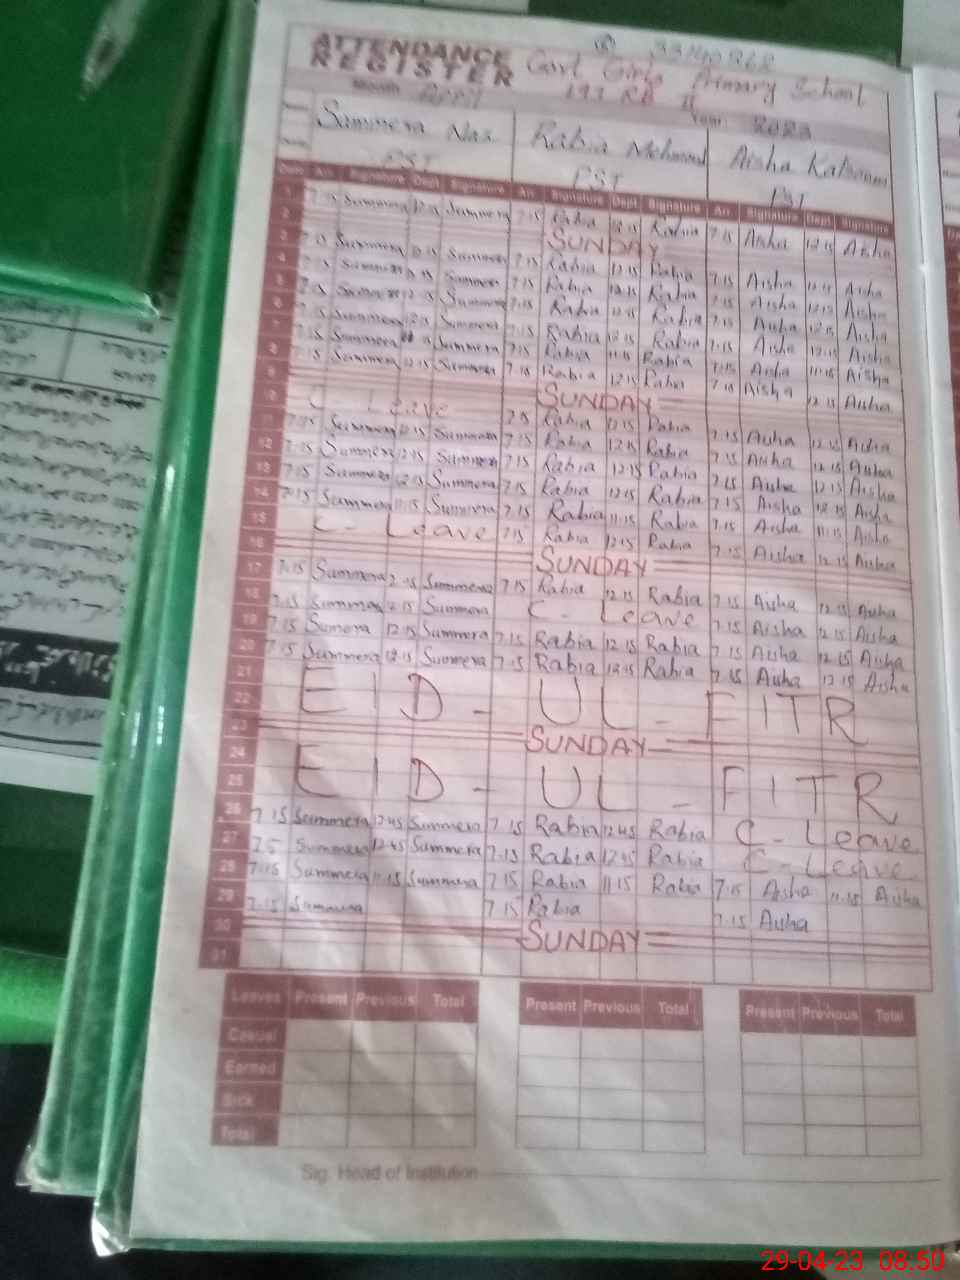 ATTENDANCE REGISTER
Govt Girls Primary School
Month April 193 RB II
Year 2023
Summera Naz Rabia Mehmood Aisha Kalsoom
PST PST PST
Date Arr. Signature Dept Signature Arr. Signature Dept. Signature Arr. Signature Dept. Signature
1 7.15 Summera 12.15 Summera 7.15 Rabia 12.15 Rabia 7.15 Aisha 12.15 Aisha
2 SUNDAY
3 7.15 Summera 12.15 Summera 7.15 Rabia 12.15 Rabia 7.15 Aisha 12.15 Aisha
4 7.15 Summera 12.15 Summera 7.15 Rabia 12.15 Rabia 7.15 Aisha 12.15 Aisha
5 7.15 Summera 12.15 Summera 7.15 Rabia 12.15 Rabia 7.15 Aisha 12.15 Aisha
6 7.15 Summera 12.15 Summera 7.15 Rabia 12.15 Rabia 7.15 Aisha 12.15 Aisha
7 7.15 Summera Summera 7.15 Rabia 11.15 Rabia 7.15 Aisha 11.15 Aisha
8 7.15 Summera 12.15 Summera 7.15 Rabia 12.15 Rabia 7.15 Aisha 12.15 Aisha
9 SUNDAY
10 C - Leave 7.15 Rabia 12.15 Rabia 7.15 Aisha 12.15 Aisha
11 7.15 Summera 12.15 Summera 7.15 Rabia 12.15 Rabia 7.15 Aisha 12.15 Aisha
12 7.15 Summera 12.15 Summera 7.15 Rabia 12.15 Rabia 7.15 Aisha 12.15 Aisha
13 7.15 Summera 12.15 Summera 7.15 Rabia 12.15 Rabia 7.15 Aisha 12.15 Aisha
14 7.15 Summera 11.15 Summera 7.15 Rabia 11.15 Rabia 7.15 Aisha 11.15 Aisha
15 C - Leave 7.15 Rabia 12.15 Rabia 7.15 Aisha 12.15 Aisha
16 SUNDAY
17 7.15 Summera 12.15 Summera 7.15 Rabia 12.15 Rabia 7.15 Aisha 12.15 Aisha
18 7.15 Summera 12.15 Summera C - Leave 7.15 Aisha 12.15 Aisha
19 7.15 Sumera 12.15 Summera 7.15 Rabia 12.15 Rabia 7.15 Aisha 12.15 Aisha
20 7.15 Summera 12.15 Summera 7.15 Rabia 12.15 Rabia 7.15 Aisha 12.15 Aisha
21
22 EID - UL - FITR
23 SUNDAY
24
25 EID - UL - FITR
26 7.15 Summera 12.45 Summera 7.15 Rabia 12.45 Rabia C - Leave
27 7.5 Summera 12.45 Summera 7.15 Rabia 12.45 Rabia C - Leave
28 7.15 Summera 11.15 Summera 7.15 Rabia 11.15 Rabia 7.15 Aisha 11.15 Aisha
29 7.15 Summera 7.15 Rabia 7.15 Aisha
30 SUNDAY
31
Leaves Present Previous Total Present Previous Total Present Previous Total
Casual
Earned
Sick
Total
Sig. Head of Institution
29-04-23 08:50